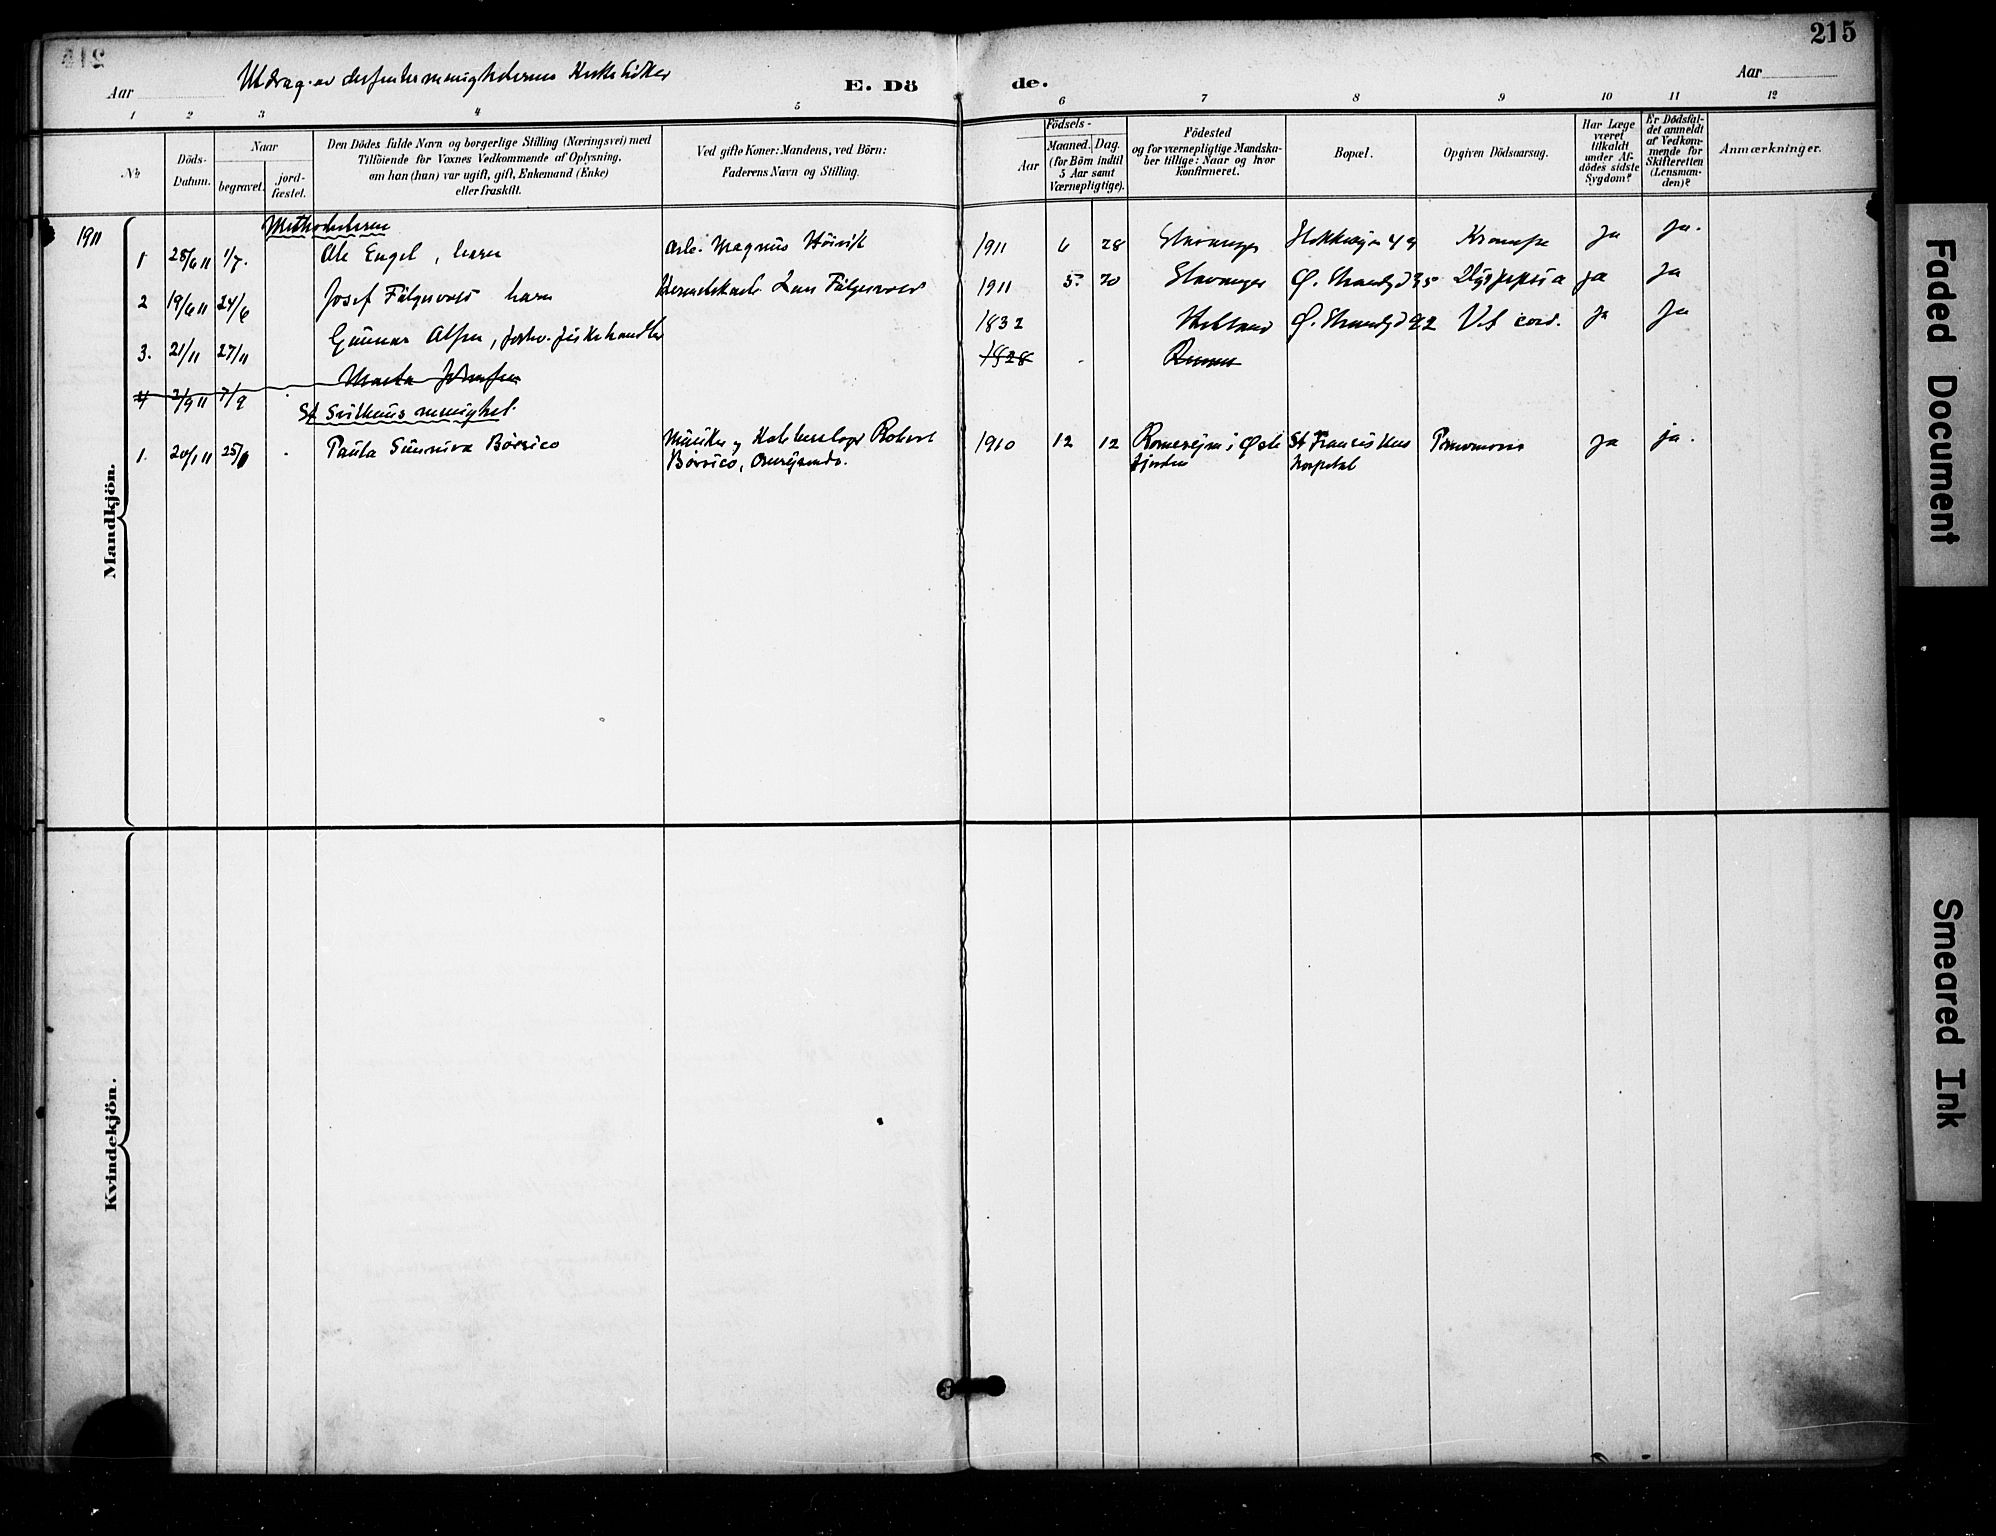 215
Aar
Utdrag av dissentermenighetenes Kirkebøker
E. Dö de.
Aar
1 2 3 4 5 6 7 8 9 10 11 12
№
Döds-Datum.
Naar
begravet.
jord-fæstet.
Den Dödes fulde Navn og borgerlige Stilling (Næringsvei) med
Tilföiende for Voxnes Vedkommende af Oplysning,
om han (hun) var ugift, gift, Enkemand (Enke)
eller fraskilt.
Ved gifte Koner: Mandens, ved Börn:
Faderens Navn og Stilling.
Födsels-
Aar
Maaned.
Dag.
(for Börn indtil
5 Aar samt
Værnepligtige).
Födested
og for værnepligtige Mandska-
ber tillige: Naar og hvor
konfirmeret.
Bopæl.
Opgiven Dödsaarsag.
Har Læge
været
tilkaldt
under Af-
dödes sidste
Sygdom?
Er Dödsfal-
det anmeldt
af Vedkom-
mende for
Skifteretten
(Lensman-
den)?
Anmærkninger.
1911
Methodisterne
1 28/6 11 1/7. Ole Engel, barn arb. Magnus Höivik 1911 6 28 Stavanger 49 Krampe ja ja.
2 19/6 11 24/6 Josef barn 1911 5. 20 Stavanger Ø. Strandgd 35 Dyspepsia ja ja
3. 21/11 27/11 Gunnar Alsen, forhv. fiskehandler 1832 Ø. Strandgd 92 Vit. cord. ja ja
4 2/9 11 7/9 Marta 1828
St Svithuns menighet.
1. 20/1 11 25/1 Paula Sunniva Borrico Musiker Robert
Borrico, 1910 12 12 i St Franciskus
hospital Pneumonia ja ja.
Mandkjön.
Kvindekjön.
Faded Document
Smeared Ink